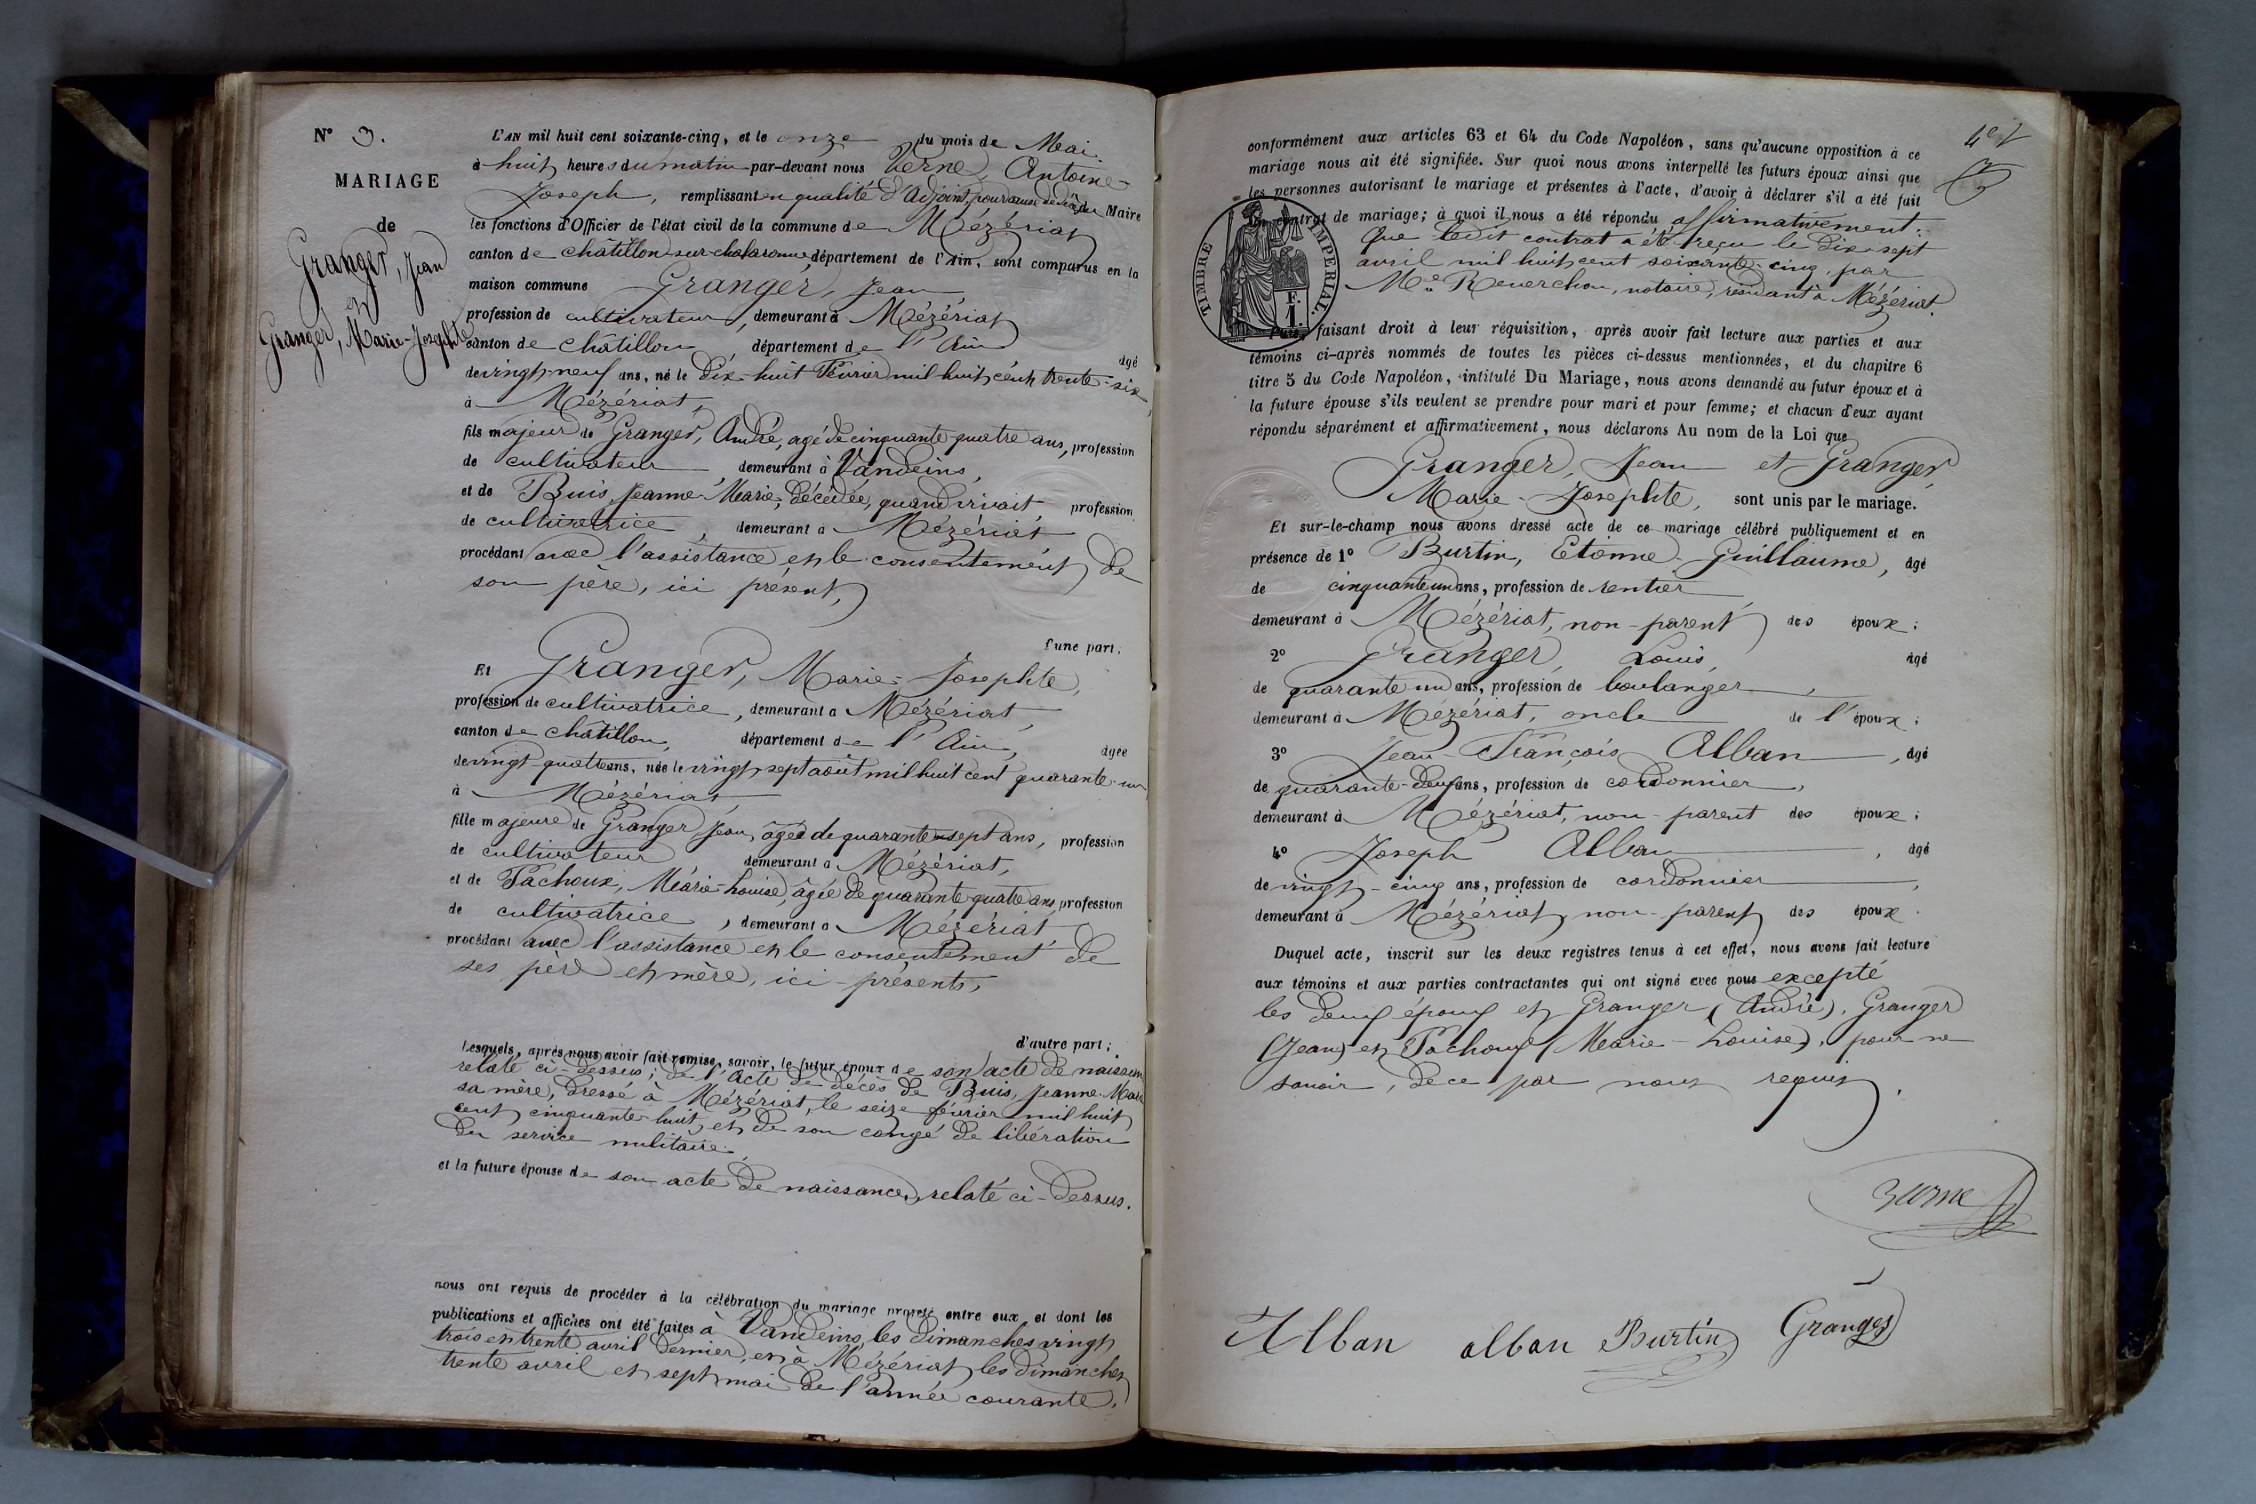 N° 3.
MARIAGE
de
Granger, Jean
et
Granger, Marie-Josephte
L'AN mil huit cent soixante-cinq, et le onze du mois de Mai.
à huit heures du matin par-devant nous Verne, Antoine-
Joseph, remplissant en qualité d'Adjoint, pour cause de du Maire
les fonctions d'Officier de l'état civil de la commune de Mézériat
canton de châtillon-sur-chalaronne département de l'Ain, sont comparus en la
maison commune Granger, Jean
profession de cultivateur, demeurant à Mézériat
canton de châtillon, département de l'Ain âgé
de vingt neuf ans, né le dix-huit Février mil huit cent trente-six,
à Mézériat,
fils majeur de Granger, André, agé de cinquante quatre ans, profession
de cultivateur demeurant à Vandeins,
et de Buis, Jeanne-Marie, décédée, quand vivait, profession
de cultivatrice, demeurant à Mézériat
procédant avec l'assistance et le consentement de
son père, ici présent,
d'une part.
Et Granger, Marie-Josephte,
profession de cultivatrice, demeurant à Mézériat,
canton de châtillon, département de l'Ain, âgée
de vingt-quatre ans, née le vingt sept août mil huit cent quarante-un
à Mézériat
fille majeure de Granger Jean, âgé de quarante-sept ans, profession
de cultivateur demeurant à Mézériat,
et de Pachoux, Marie-Louise, âgée de quarante quatre ans, profession
de cultivatrice, demeurant à Mézériat,
procédant avec l'assistance et le consentement de
ses père et mère, ici-présents,
d'autre part;
Lesquels, après nous avoir fait remise, savoir, le futur époux de son acte de naissance
relaté ci-dessus; de l'acte de décès de Buis, Jeanne-Marie
sa mère, dressé à Mézériat, le seize février mil huit
cent cinquante-huit, et de son congé de libération
du service militaire.
et la future épouse de son acte de naissance, relaté ci-dessus.
nous ont requis de procéder à la célébration du mariage projeté entre eux et dont les
publications et affiches ont été faites à Vandeins, les dimanches vingt
trois et trente avril dernier, et à Mézériat, les dimanches
trente avril et sept mai de l'année courante.
conformément aux articles 63 et 64 du Code Napoléon, sans qu'aucune opposition à ce
mariage nous ait été signifiée. Sur quoi nous avons interpellé les futurs époux ainsi que
les personnes autorisant le mariage et présentes à l'acte, d'avoir à déclarer s'il a été fait
contrat de mariage; à quoi il nous a été répondu affirmativement:
Que ledit contrat a été reçu le dix-sept
avril mil huit cent soixante-cinq, par
Me Reverchon, notaire, résidant à Mézériat.
TIMBRE IMPÉRIAL.
F.
1.
Puis, faisant droit à leur réquisition, après avoir fait lecture aux parties et aux
témoins ci-après nommés de toutes les pièces ci-dessus mentionnées, et du chapitre 6
titre 5 du Code Napoléon, intitulé Du Mariage, nous avons demandé au futur époux et à
la future épouse s'ils veulent se prendre pour mari et pour femme; et chacun d'eux ayant
répondu séparément et affirmativement, nous déclarons Au nom de la Loi que
Granger, Jean et Granger,
Marie-Josephte, sont unis par le mariage.
Et sur-le-champ nous avons dressé acte de ce mariage célébré publiquement et en
présence de 1° Burtin, Etienne-Guillaume, âgé
de cinquante un ans, profession de rentier
demeurant à Mézériat, non-parent des époux;
2° Granger, Louis, âgé
de quarante un ans, profession de boulanger,
demeurant à Mézériat, oncle de l'époux;
3° Jean-François Alban, âgé
de quarante-deux ans, profession de cordonnier,
demeurant à Mézériat, non-parent des époux;
4° Joseph Alban, âgé
de vingt-cinq ans, profession de cordonnier,
demeurant à Mézériat, non-parent des époux.
Duquel acte, inscrit sur les deux registres tenus à cet effet, nous avons fait lecture
aux témoins et aux parties contractantes qui ont signé avec nous excepté
les deux époux et Granger (André), Granger
(Jean) et Pachoux (Marie-Louise), pour ne
savoir, de ce par nous requis.
Verne
Alban alban Burtin Granger